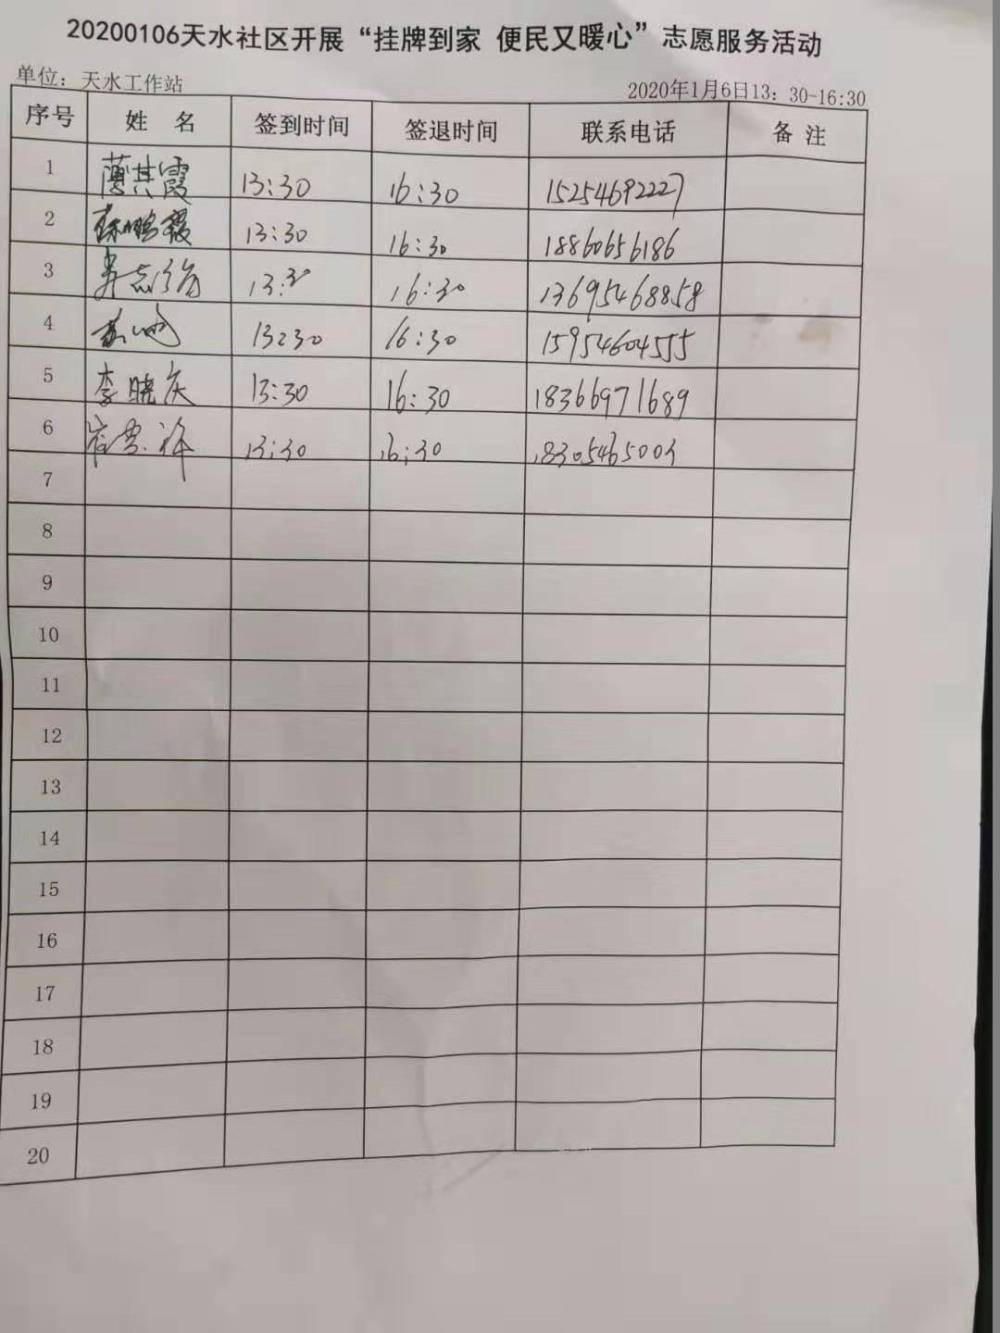 20200106天水社区开展“挂牌到家 便民又暖心”志愿服务活动
单位：天水工作站 2020年1月6日13：30-16:30
序号 姓 名 签到时间 签退时间 联系电话 备 注
1 薄其霞 13:30 16:30 15254692227
2 13:30 16:30 18860656186
3 13:30 16:30 13695468858
4 13:30 16:30 15954604555
5 李晓庆 13:30 16:30 18366971689
6 13:30 16:30 18305465003
7
8
9
10
11
12
13
14
15
16
17
18
19
20